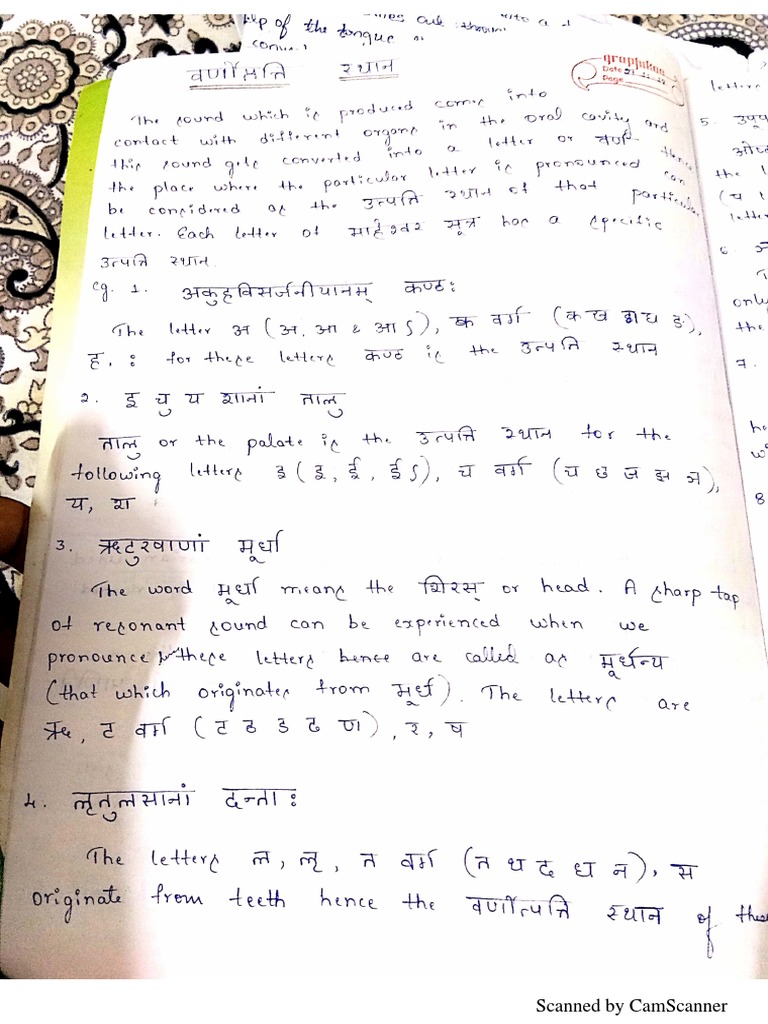 of the tongue
वर्णोत्पत्ति स्थान
The sound which is produced comes into
contact with different organs in the oral cavity and
this sound gets converted into a letter or वर्ण hence
the place where the particular letter is pronounced can
be considered as the उत्पत्ति स्थान of that particular
letter. Each letter of माहेश्वर सूत्र has a specific
उत्पत्ति स्थान.
eg. 1. अकुहविसर्जनीयानाम् कण्ठः
The letter अ (अ, आ & आ ऽ), क वर्ग (क ख ग घ ङ),
ह, : for these letters कण्ठ is the उत्पत्ति स्थान
2. इ चु य शानां तालु
तालु or the palate is the उत्पत्ति स्थान for the
following letters इ (इ, ई, ई ऽ), च वर्ग (च छ ज झ ञ),
य, श
3. ऋटुरषाणां मूर्धा
The word मूर्धा means the शिरस् or head. A sharp tap
of resonant sound can be experienced when we
pronounce these letters hence are called as मूर्धन्य
(that which originates from मूर्ध). The letters are
ऋ, ट वर्ग (ट ठ ड ढ ण), र, ष
4. लृतुलसानां दन्ताः
The letters ल, लृ, त वर्ग (त थ द ध न), स
originate from teeth hence the वर्णोत्पत्ति स्थान of these
letters
5.
the
6.
only
the
7.
8
Scanned by CamScanner